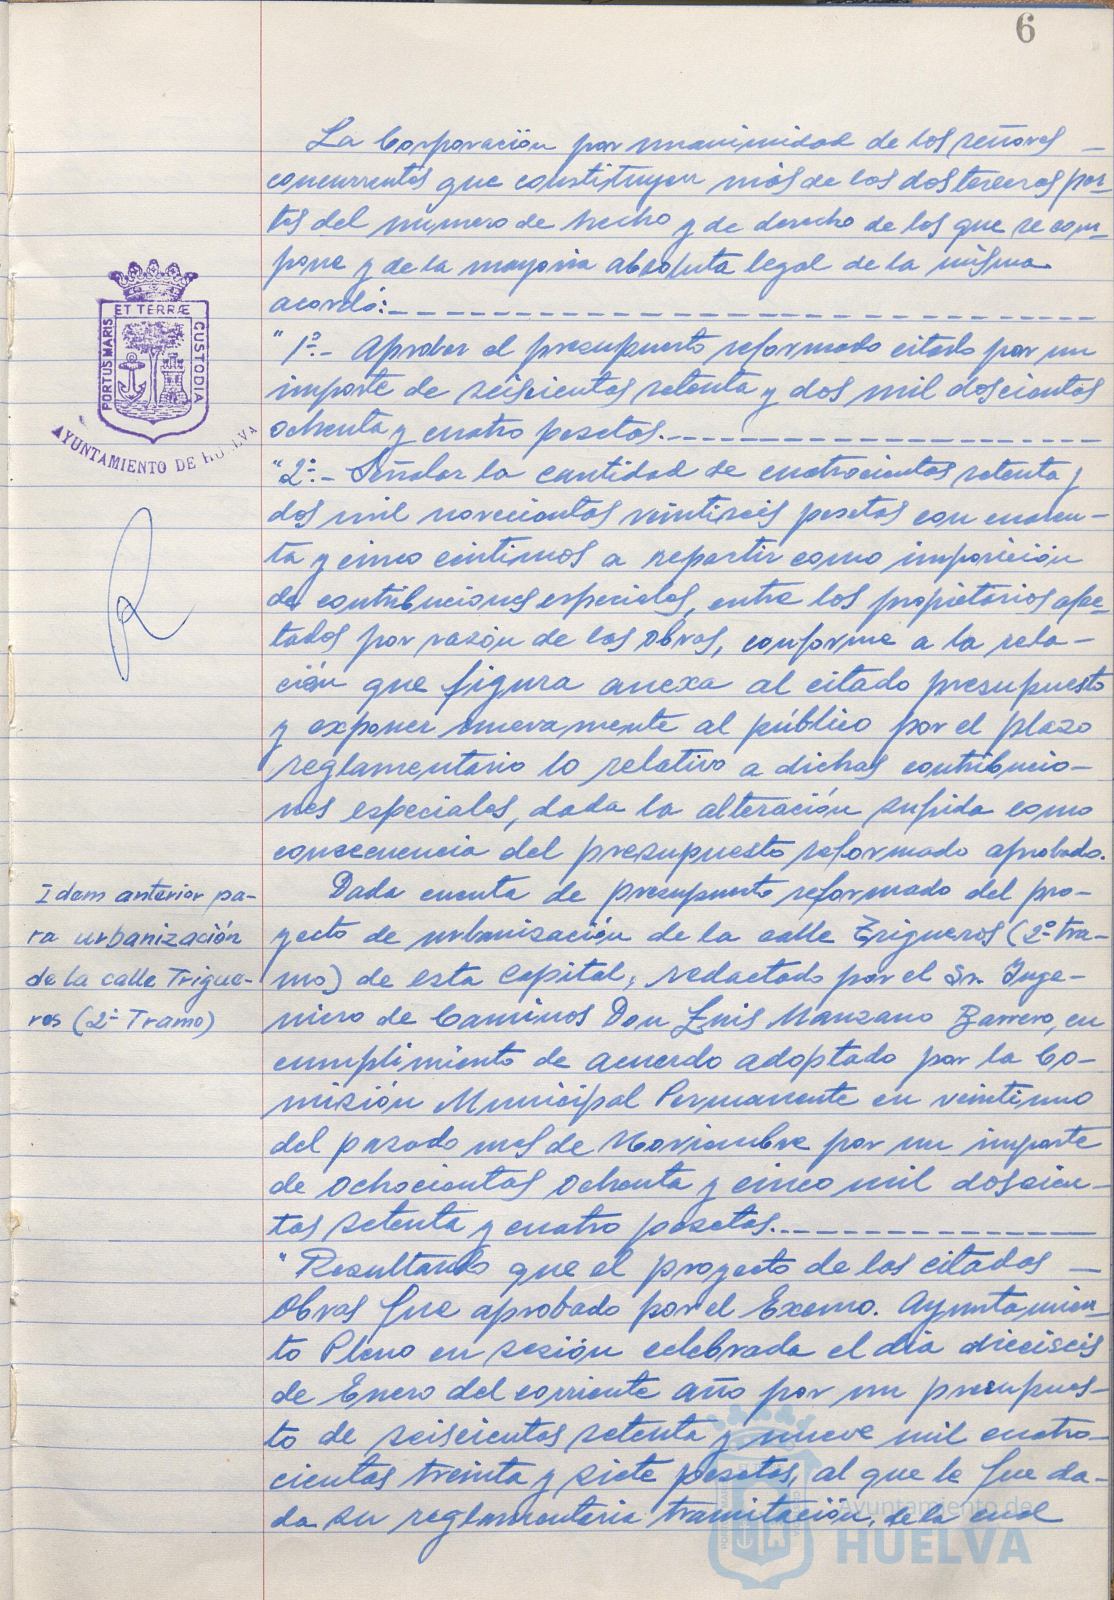 6
La Corporación por unanimidad de los señores —
concurrentes que constituyen más de las dos terceras par-
tes del número de hecho y de derecho de los que se com-
pone y de la mayoria absoluta legal de la misma
acordó:
"1º.- Aprobar el presupuesto reformado citado por un
importe de seiscientas setenta y dos mil doscientas
ochenta y cuatro pesetas.
"2º.- Señalar la cantidad de cuatrocientas setenta y
dos mil novecientas veintiseis pesetas con cuaren-
ta y cinco céntimos a repartir como imposición
de contribuciones especiales, entre los propietarios afec-
tados por razón de las obras, conforme a la rela-
ción que figura anexa al citado presupuesto
y exponer nuevamente al público por el plazo
reglamentario lo relativo a dichas contribucio-
nes especiales, dada la alteración sufrida como
consecuencia del presupuesto reformado aprobado.
Idem anterior pa-
ra urbanización
de la calle Trigue-
ros (2º Tramo)
Dada cuenta de presupuesto reformado del pro-
yecto de urbanización de la calle Trigueros (2º tra-
mo) de esta Capital, redactado por el Sr. Inge-
niero de Caminos Don Luis Manzano Barrero, en
cumplimiento de acuerdo adoptado por la Co-
misión Municipal Permanente en veintiuno
del pasado mes de Noviembre por un importe
de ochocientas ochenta y cinco mil doscien-
tas setenta y cuatro pesetas.
"Resultando que el proyecto de las citadas —
obras fue aprobado por el Excmo. Ayuntamien-
to Pleno en sesión celebrada el día dieciseis
de Enero del corriente año por un presupues-
to de seiscientas setenta y nueve mil cuatro-
cientas treinta y siete pesetas, al que le fue da-
da su reglamentaria tramitación, de la cual
PORTUS MARIS ET TERRÆ CUSTODIA
AYUNTAMIENTO DE HUELVA
Ayuntamiento de
HUELVA